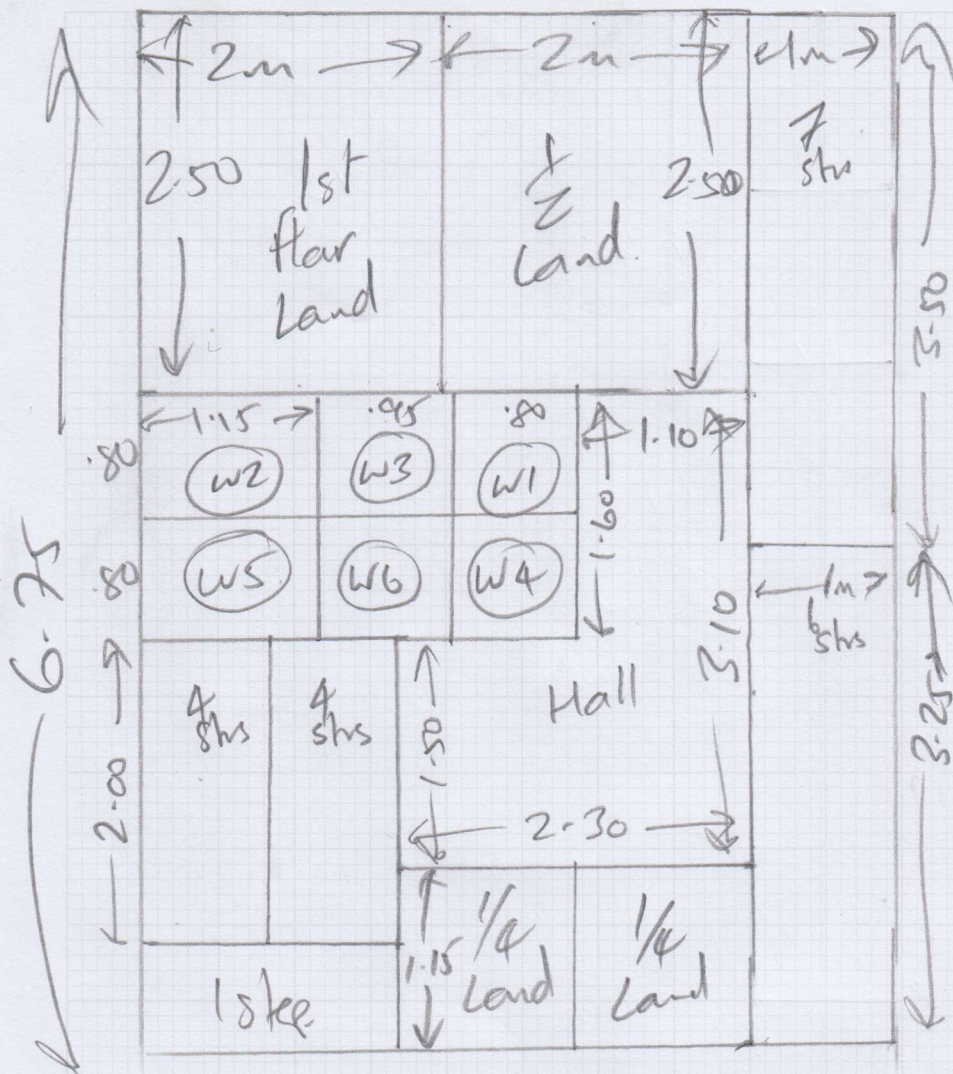 2m
2m
1m
2.50
1st
floor
Land
1/2
Land.
2.50
7
strs
3.50
6.75
.80
1.15
.95
.80
1.10
W2
W3
W1
1.60
.80
W5
W6
W4
3.10
1m
6
strs
3.25
2.00
4
strs
4
strs
1.50
Hall
2.30
1 step
1.15
1/4
Land
1/4
Land